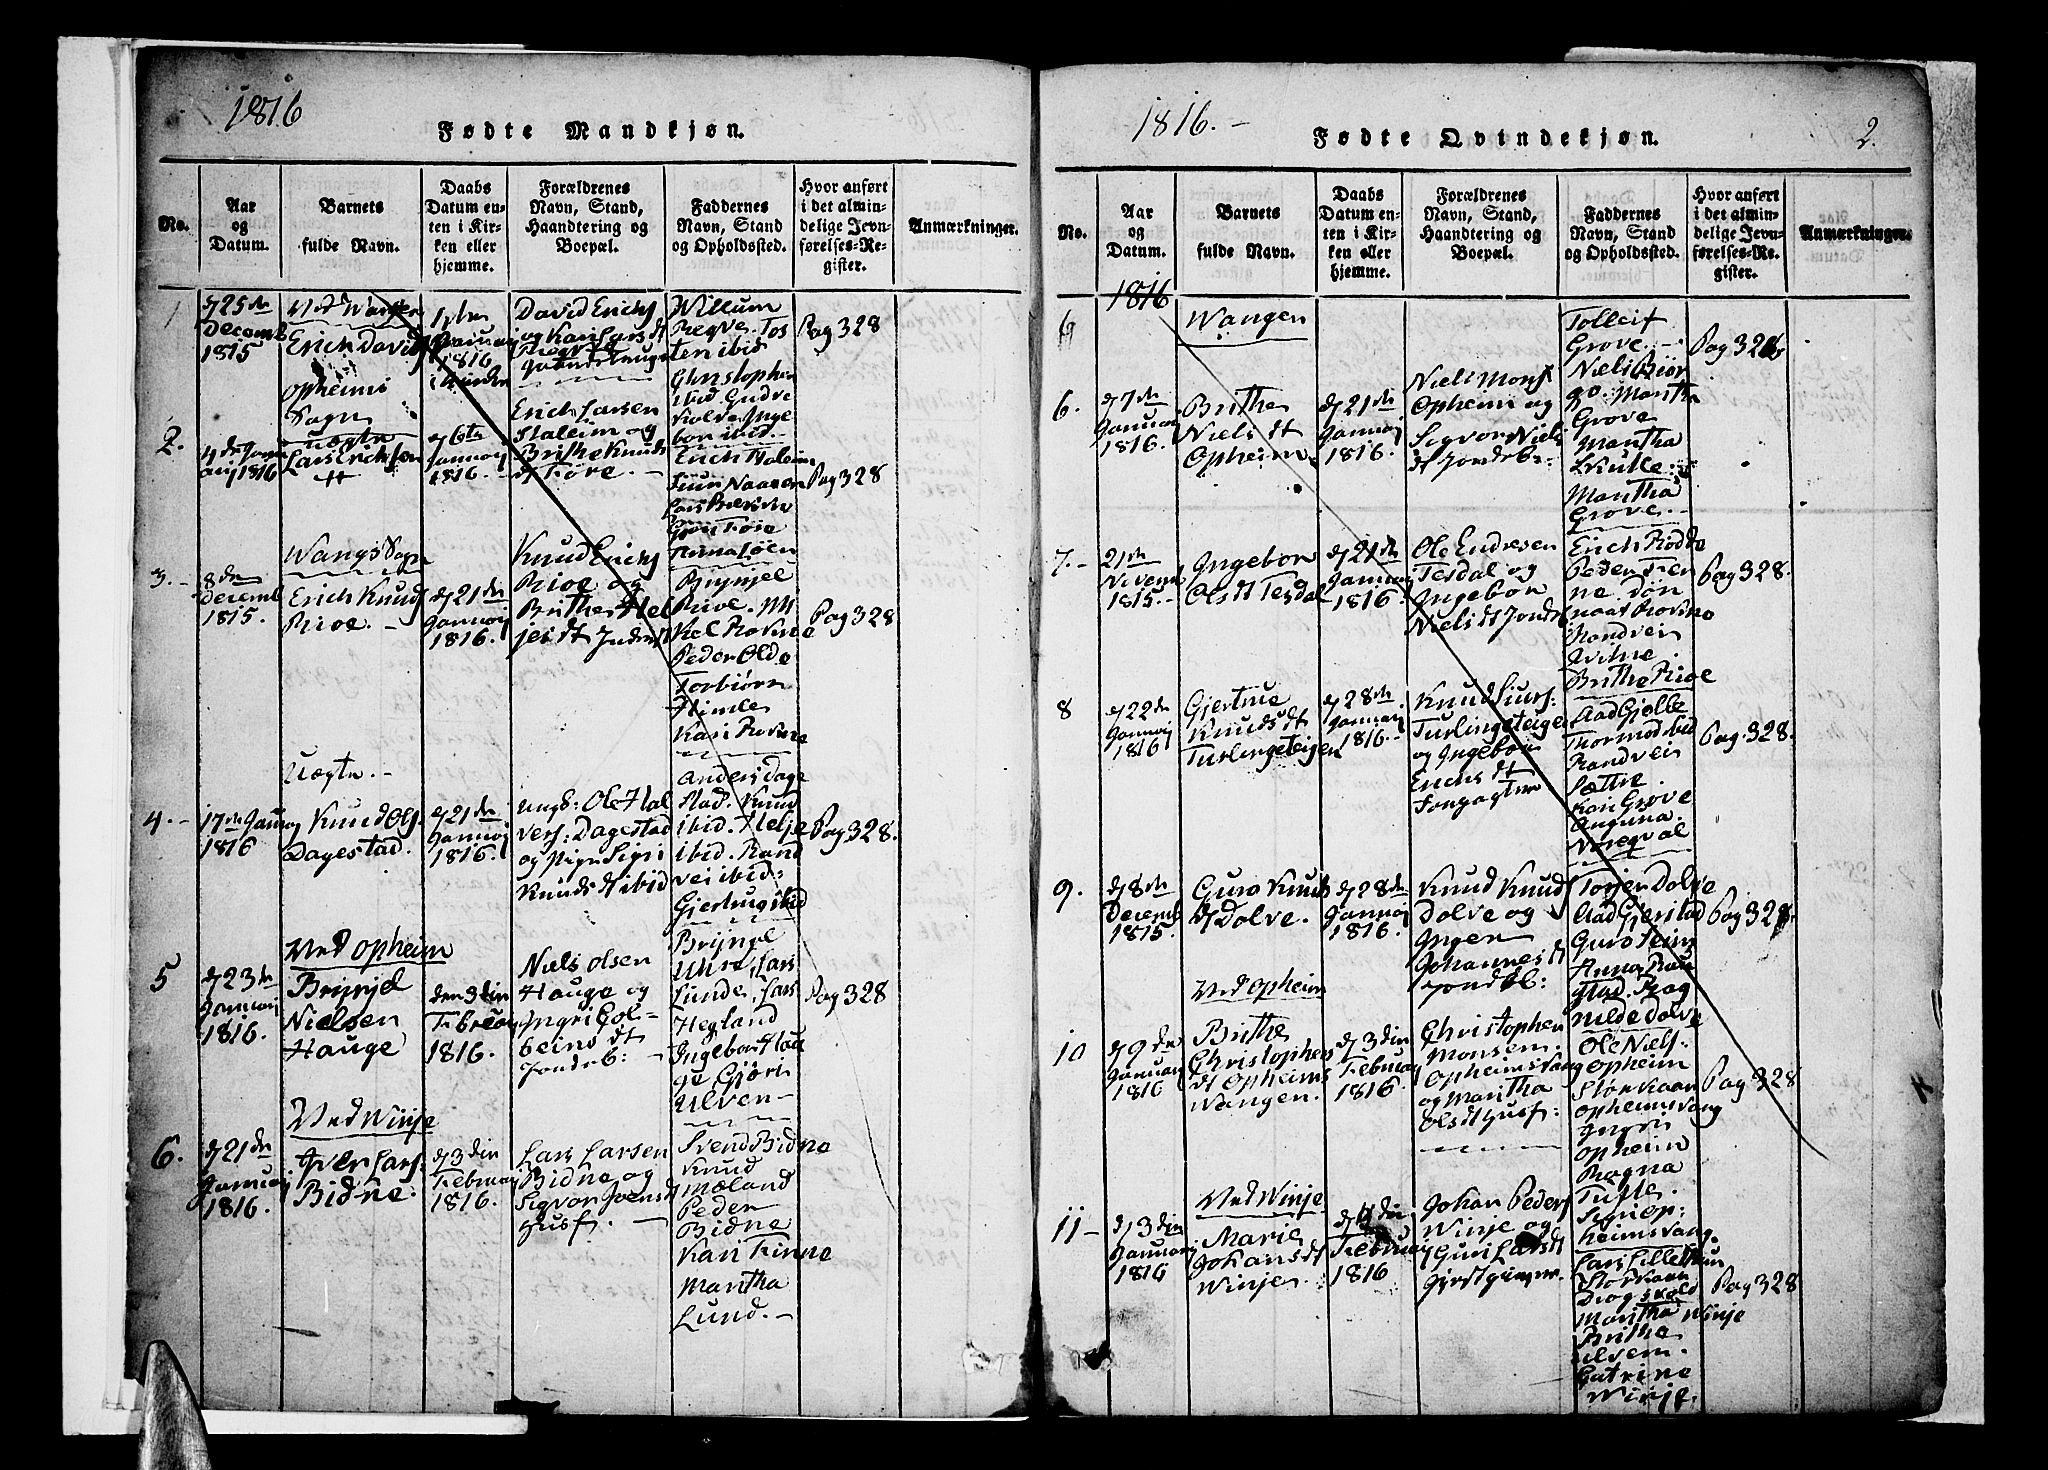 1816
Fødte Mandkjøn.
No.
Aar
og
Datum.
Barnets
fulde Navn.
Daabs
Datum en-
ten i Kir-
ken eller
hjemme.
Forældrenes
Navn, Stand,
Haandtering og
Boepæl.
Faddernes
Navn, Stand
og Opholdssted.
Hvor anført
i det almin-
delige Jevn-
førelses-Re-
gister.
Anmærkninger.
1
d 25de
Decemb
1815
Ved Wangen
Erich Davids
1ste
Januarj
1816
David Erichs
og Kari Lars dt
Willum
Reqve. Tos
ten ibid
Christopher
Pag 328
2.
4de Janu
arj 1816
Opheims
Sogn
uægte
Lars Erichsen
d 6te
Januarj
1816.
Erich Larsen
Stalem og
Brithe Knuds
dt Føre.
bor ibid.
Erich Stalem
Pag 328
3.
8de
Decemb
1815.
Wangs Sogn
Erich Knuds
Rioe.
d 21de
Januarj
1816.
Knud Erichs
Rioe og
Brithe Hel
jes dt
Brynjel
Rioe. Mi
kel Rovene
Peder Olde
Torbiørn
Himle
Kari Rovene
Pag 328
4.
17de Januarj
1816
Uægte.
Knud Ols.
Dagestad.
d 21de
Januarj
1816.
Ungk: Ole Hal
vers: Dagestad
og Pige Sigri
Knuds dt ibid
Anders Dage
stad. Knud
ibid. Helje
ibid. Rand
vei ibid:
Gjertrug ibid
Pag 328.
5
d 23de
Januarj
1816.
Ved Opheim
Brynjel
Nielsen
Hauge
den 3die
Februarj
1816.
Niels Olsen
Hauge og
Ingri Col-
beins dt
Jordeb:
Brynjel
Uhre, Lars
Lunde, Lars
Hegland
Ingebor Hau
ge, Gjøri
Ulven
Pag 328
6.
d 21de
Januarj
1816.
Ved Winje
Iver Lars:
Bidne.
d 3die
Februarj
1816.
Lars Larsen
Bidne og
Sigvor Joensdt
Husf.
Svend Bidne
Knud
Mæland
Peder
Bidne
Kari Finne
Martha
Lund.
1816.
Fødte Qvindekjøn.
2.
No.
Aar
og
Datum.
Barnets
fulde Navn.
Daabs
Datum en-
ten i Kir-
ken eller
hjemme.
Forældrenes
Navn, Stand,
Haandtering og
Boepæl.
Faddernes
Navn, Stand
og Opholdssted.
Hvor anført
i det almin-
delige Jevn-
førelses-Re-
gister.
Anmærkninger.
1816
Wangen
6.
d 7de
Januarj
1816.
Brithe
Niels dt
Opheim
d 21de
Januarj
1816.
Niels Mons
Opheim og
Sigvor Niels
dt Jordeb:
Tolleif
Grove.
Niels Biør
go. Martha
Grove
Martha
Martha
Grove.
Pag 328
7.
21de
Novemb
1815.
Ingebor
Olsdt Tesdal
d 21de
Januarj
1816.
Ole Endresen
Tesdal og
Ingebor
Niels dt Jordb
Erich Rodde
Peder Fen
ne. Jon
naas Rovene
Randvei
Brithe Rioe
Pag 328.
8
d 22de
Januarj
1816
Gjertrue
Knuds dt
Turlingsteigen
d 28de
Januarj
1816.
Knud Siurs:
Turlingsteigen
og Ingebor
Erichs dt
Aad Gjelle
Thormod ibid
Randvei
Sættre.
Kari Grove
Pag. 328.
9.
d 8de
Decemb
1815.
Guro Knuds
dt Dolve.
d 28de
Januarj
1816.
Knud Knuds
Dolve og
Inger
Johannes dt
Jordb:
Torjer Dolve
Aad Gjerstad
Guro Seim
Anna Rau
stad. Rag
nilde Dolve
Pag 328.
10
d 9de
Januarj
1816
Ved Opheim
Brithe
Christophers
dt Opheims
Wangen.
d 3die
Februarj
1816.
Christopher
Monsen
Opheimsvang
og Martha
Olsdt Husf:
Ole Niels:
Opheim
Størkaar
Opheimsvang
Opheim
Ragna
Tufte.
heimsvang.
Pag 328
11
d 3die
Januarj
1816
Ved Winje
Marie
Johansdt
Winje.
Februarj
1816
Johan Peders
Winje og
Guri Larsdt
Lars Lillethun
Størkaar
Martha Winje
Brithe
Catrine
Winje.
Pag 328